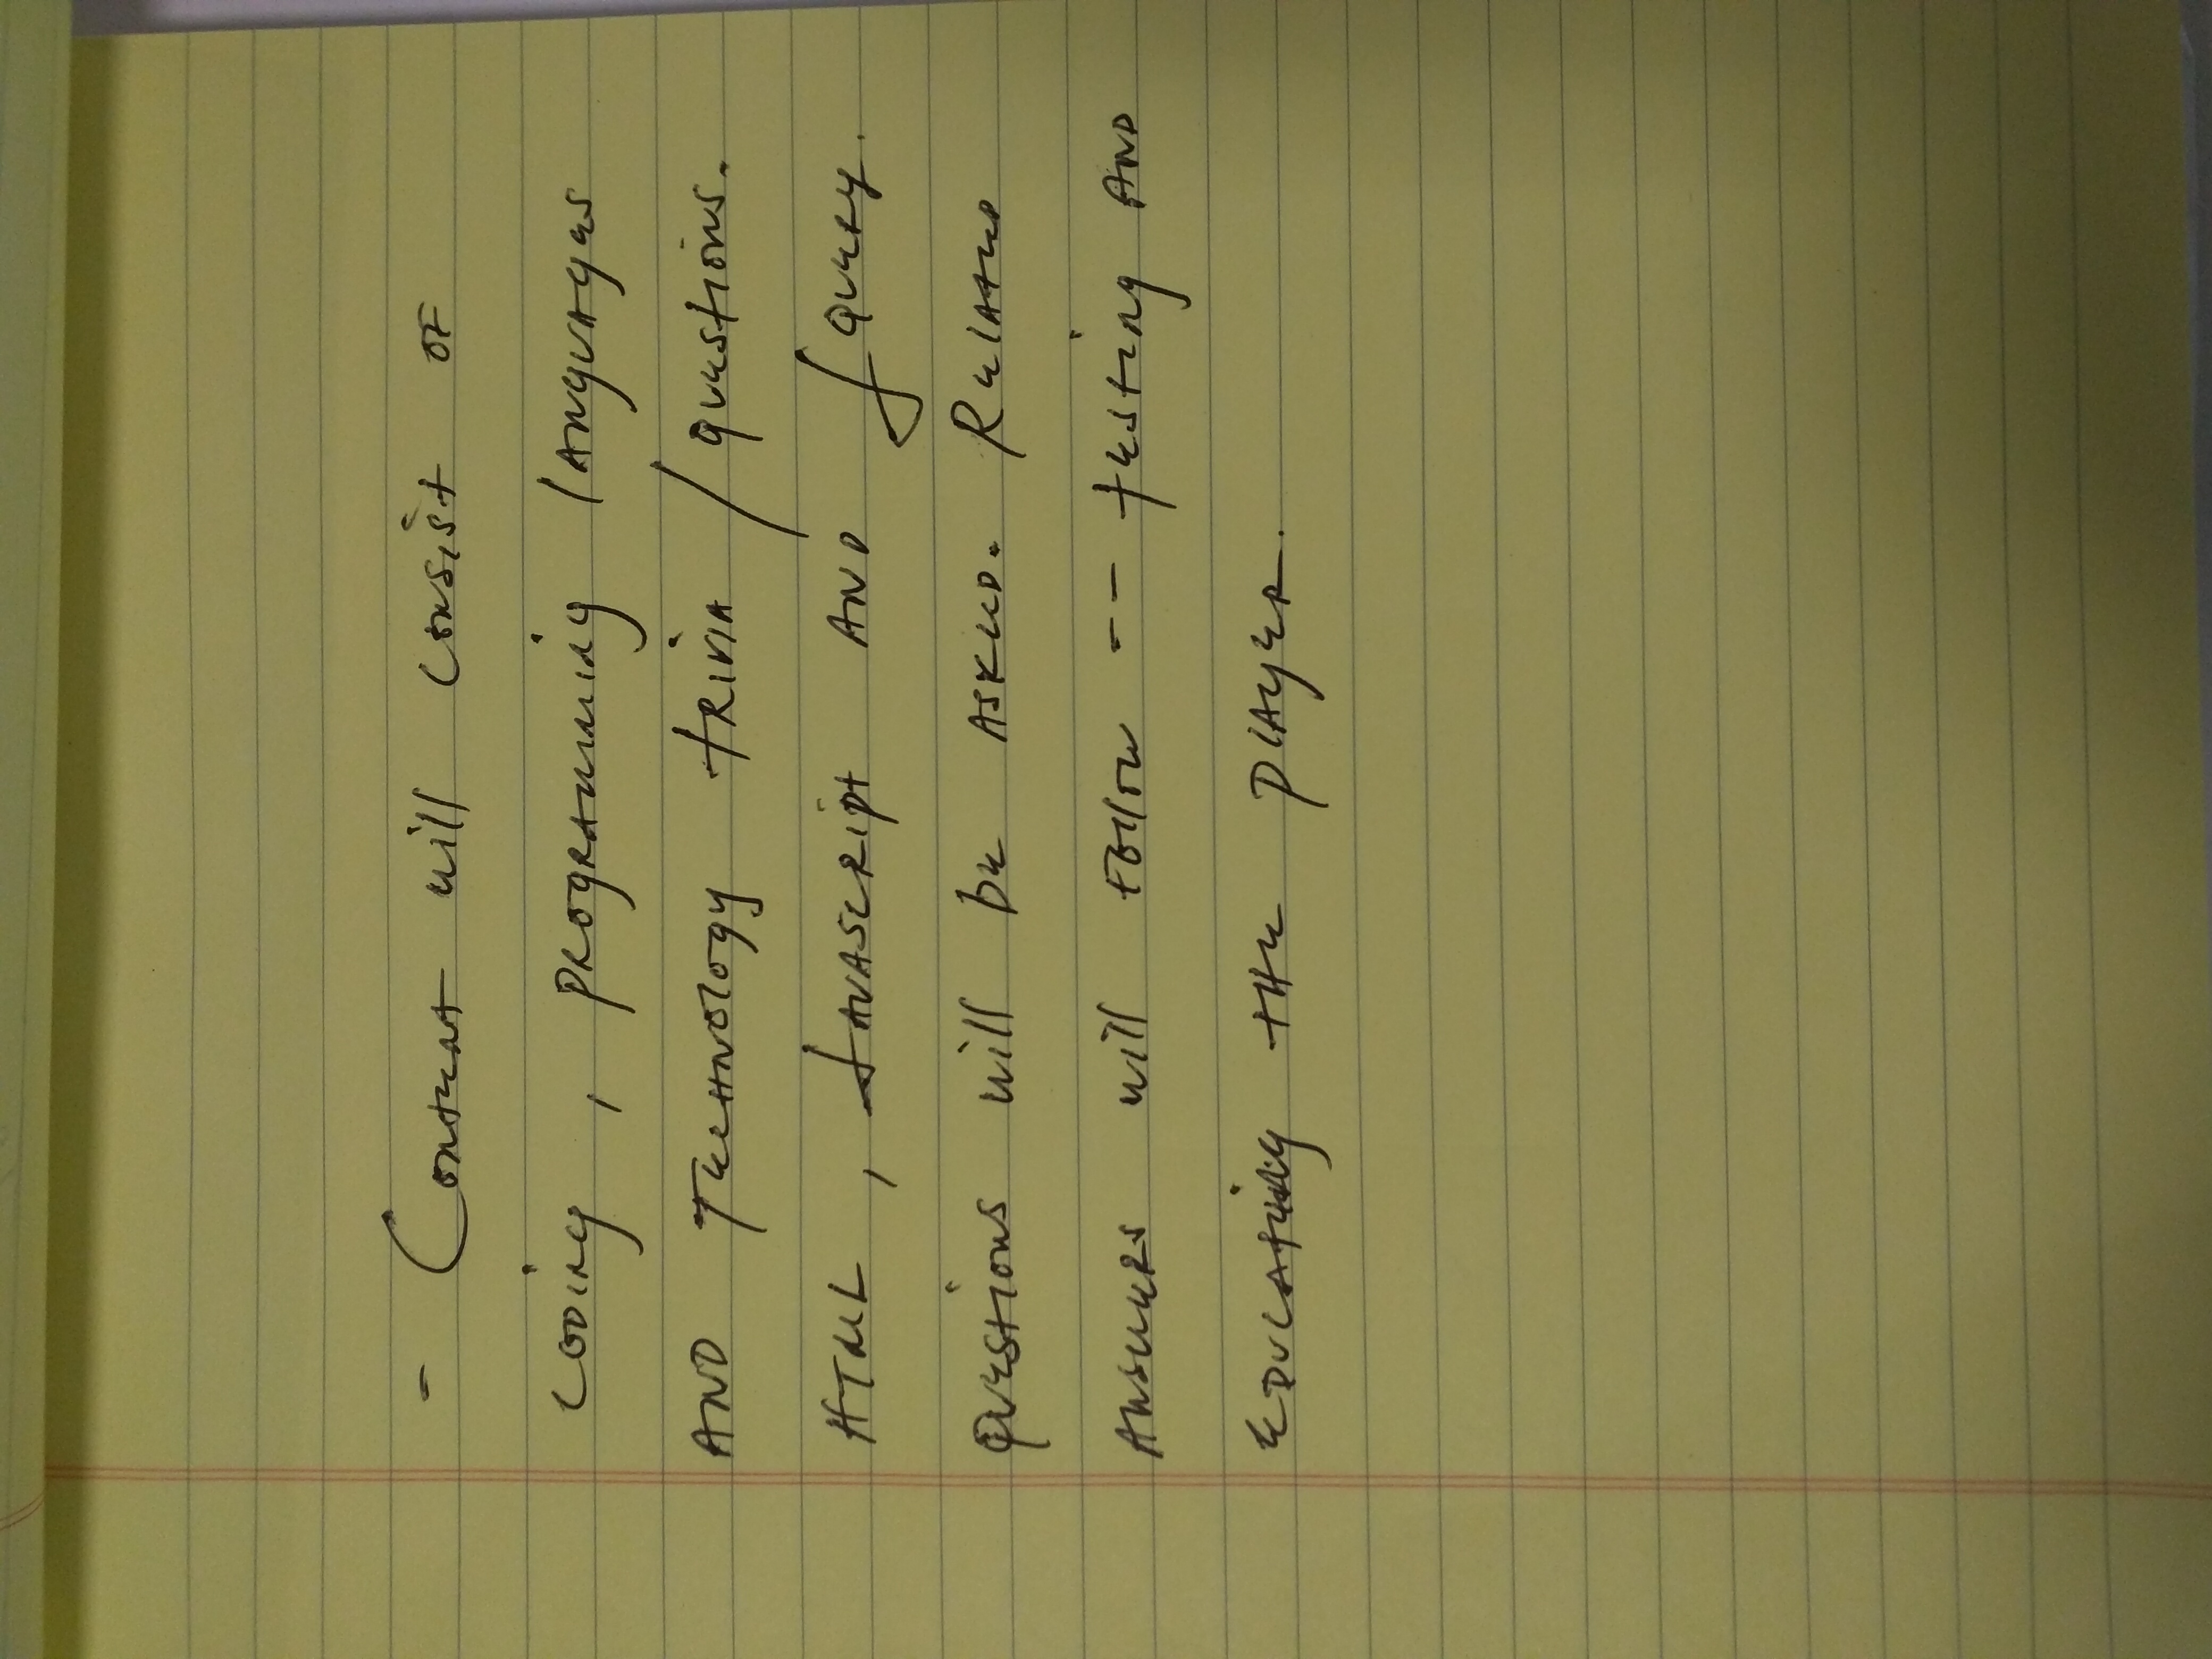 - Content will consist of
coding, programming languages
AND Technology trivia / questions.
HTML, JAVASCRIPT AND JQUERY.
Questions will be ASKED. Related
Answers will follow -- testing AND
educating the player.